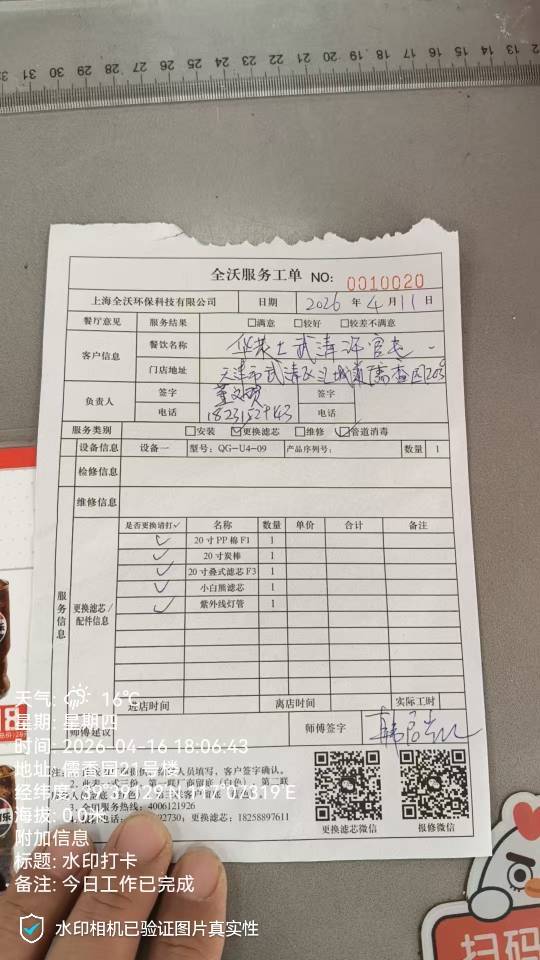 31 30 29 28 27 26 25 24 23 22 21 20 19 18 17 16 15 14 13
全沃服务工单 NO: 0010020
上海全沃环保科技有限公司 日期 2026 年 4 月 11 日
餐厅意见 服务结果 □满意 □较好 □较差不满意
客户信息 餐饮名称 华莱士武清
门店地址 天津市武清区
负责人 签字 签字
电话 电话
服务类别 □安装 ☑更换滤芯 □维修 ☑管道消毒
设备信息 设备一 型号: QG-U4-09 产品序列号: 数量 1
检修信息
维修信息
服务信息
更换滤芯/配件信息
是否更换请打✓ 名称 数量 单价 合计 备注
✓ 20寸PP棉F1 1
✓ 20寸炭棒 1
✓ 20寸叠式滤芯F3 1
✓ 小白熊滤芯 1
✓ 紫外线灯管 1
进店时间 离店时间 实际工时
师傅建议 师傅签字
人员填写，客户签字确认。
2. 此表一式三份，第一联厂商留底（白色），第二联
3. 全国服务热线: 4006121926
22730; 重庆服务: 18258897611
更换滤芯微信 报修微信
天气: 16℃
星期: 星期四
时间: 2026-04-16 18:06:43
地址: 儒香园21号楼
海拔: 0.0米
附加信息
标题: 水印打卡
备注: 今日工作已完成
水印相机已验证图片真实性
扫码